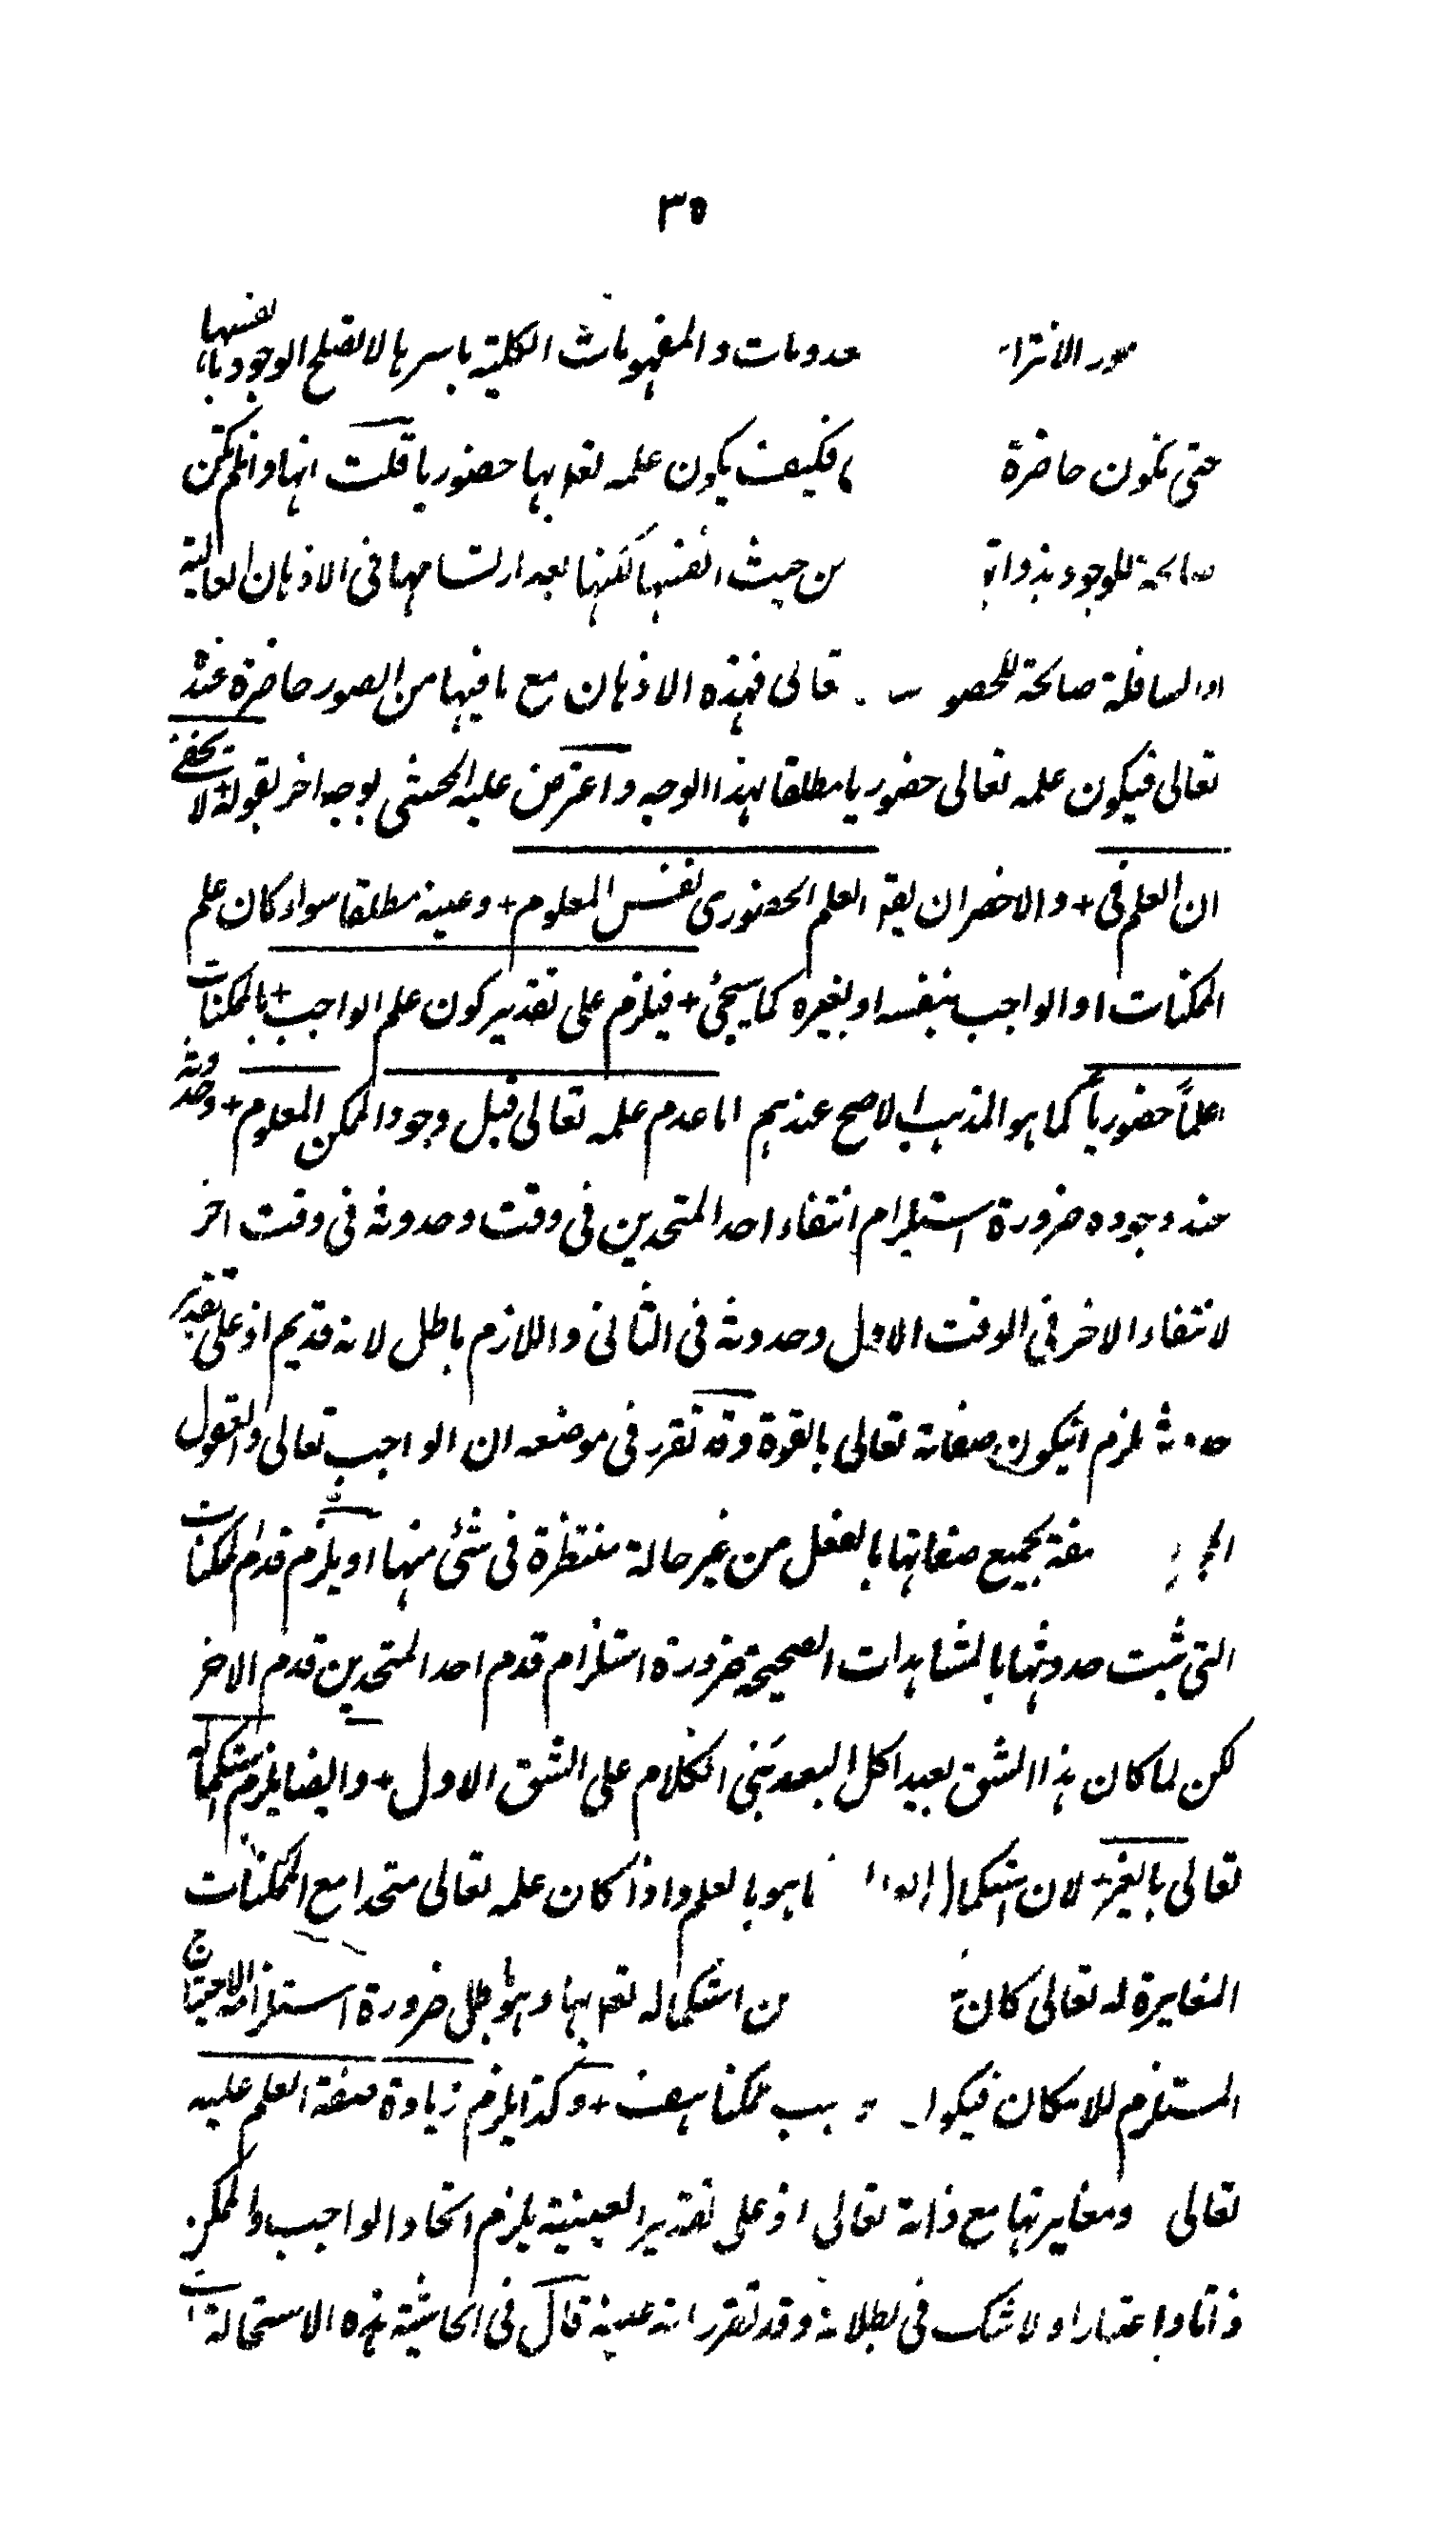 ٣٥
ور الانتزا عدومات والمفهومات الكلية باسرها لا تصلح الوجود بانفسها
حتى تكون حاضرة فكيف يكون علمه تعه بها حضوريا قلت انها وانلم تكن
صالحة للوجود بذواتها من حيث انفسها لكنها بعد ارتسامها فى الاذهان العالية
او السافلة صالحة للحصو تعالى فهذه الاذهان مع ما فيها من الصور حاضرة عنده
تعالى فيكون علمه تعالى حضوريا مطلقا بهذا الوجه واعترض عليه المحشى بوجه اخر بقوله + لا يخفى
ان العلم فى + والاخصر ان يقه العلم الحضورى نفس المعلوم + وعينه مطلقا سواء كان علم
الممكنات او الواجب بنفسه او بغيره كما سيجئ + فيلزم على تقدير كون علم الواجب + بالممكنات
علمًا حضورياً كما هو المذهب الاصح عندهم اما عدم علمه تعالى قبل وجود الممكن المعلوم + وحدوثه
عند وجوده ضرورة استلزام انتفاء احد المتحدين فى وقت وحدوثه فى وقت اخر
لانتفاء الاخر فى الوقت الاول وحدوثه فى الثانى واللازم باطل لانه قديم اذ على تقدير
حدوثه يلزم انيكون صفاته تعالى بالقوة وقد تقرر فى موضعه ان الواجب تعالى والعقول
المجر صفة بجميع صفاتها بالفعل من غير حالة منتظرة فى شئ منها او يلزم قدم الممكنات
التى ثبت حدوثها بالمشاهدات الصحيحة ضرورة استلزام قدم احد المتحدين قدم الاخر
لكن لما كان هذا الشق بعيدا كل البعد بنى الكلام على الشق الاول + وايضا يلزم استكماله
تعالى بالغير + لان استكما الوا ما هو بالعلم واذا كان علمه تعالى متحدا مع الممكنات
المغايرة له تعالى كان من استكماله تعه بها وهو بطل ضرورة استلزامه الاحتياج
المستلزم للامكان فيكو جب ممكنا هف + وكذا يلزم زيادة صفة العلم عليه
تعالى ومغايرتها مع ذاته تعالى اذ على تقدير العينية يلزم اتحاد الواجب والممكن
ذاتا واعتبارا ولا شك فى بطلانه وقد تقرر انه عينه قال فى الحاشية هذه الاستحالة